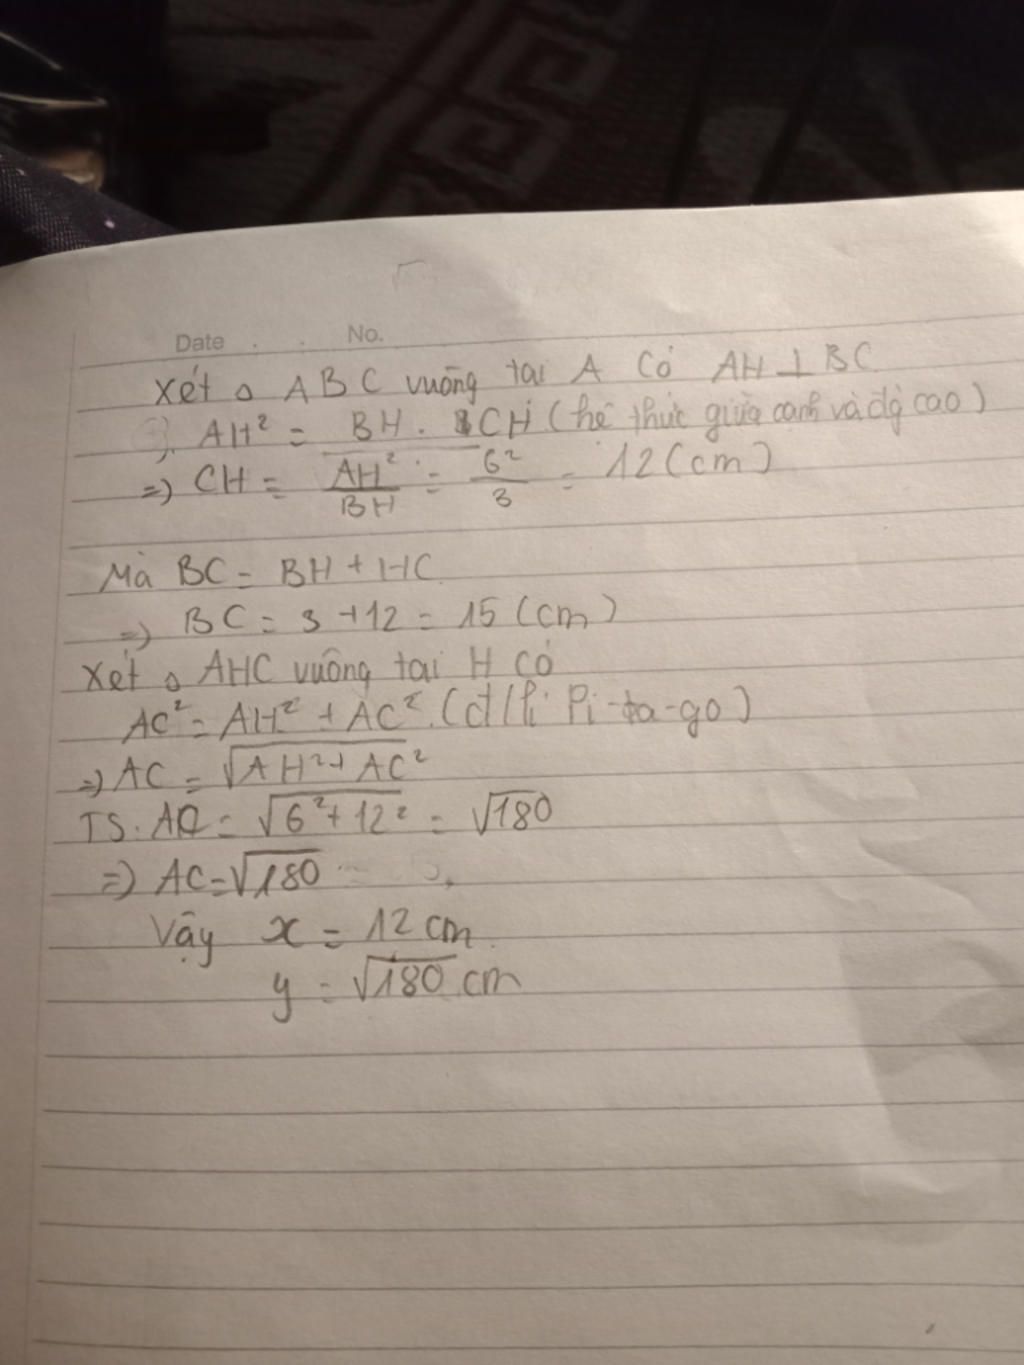 Date . . No.
Xét △ ABC vuông tại A Có AH ⊥ BC
AH² = BH . CH (hệ thức giữa cạnh và độ cao)
=) CH = AH²/BH = 6²/3 = 12 (cm)
Mà BC = BH + HC
=) BC = 3 + 12 = 15 (cm)
Xét △ AHC vuông tại H Có
AC² = AH² + AC² (đ/lí Pi-ta-go)
=) AC = √AH² + AC²
TS: AC = √6² + 12² = √180
=) AC = √180
Vậy x = 12 cm.
y = √180 cm